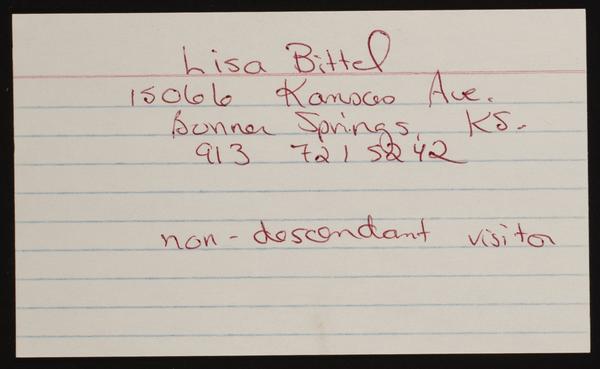 Lisa Bittel
15066 Kansas Ave.
Bonner Springs, KS.
913 721 5242
non-descendant visitor